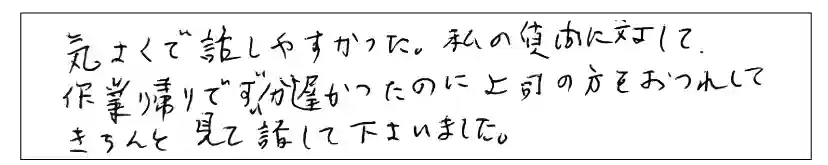 気さくで話しやすかった。私の質問に対して、
作業帰りでずいぶ遅かったのに上司の方をおつれして
きちんと見て話して下さいました。